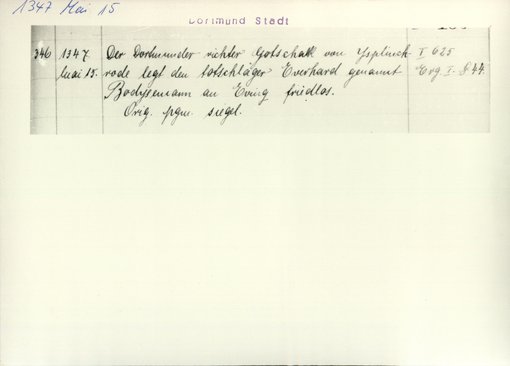 1347 Mai 15
Dortmund Stadt
346 1347 Der Dortmunder richter Gotschalk von Ysplinck- I 625
Mai 15. rode legt den totschläger Everhard genannt Erg I. S 44.
an Eving friedlos.
Orig. pgm. siegel.